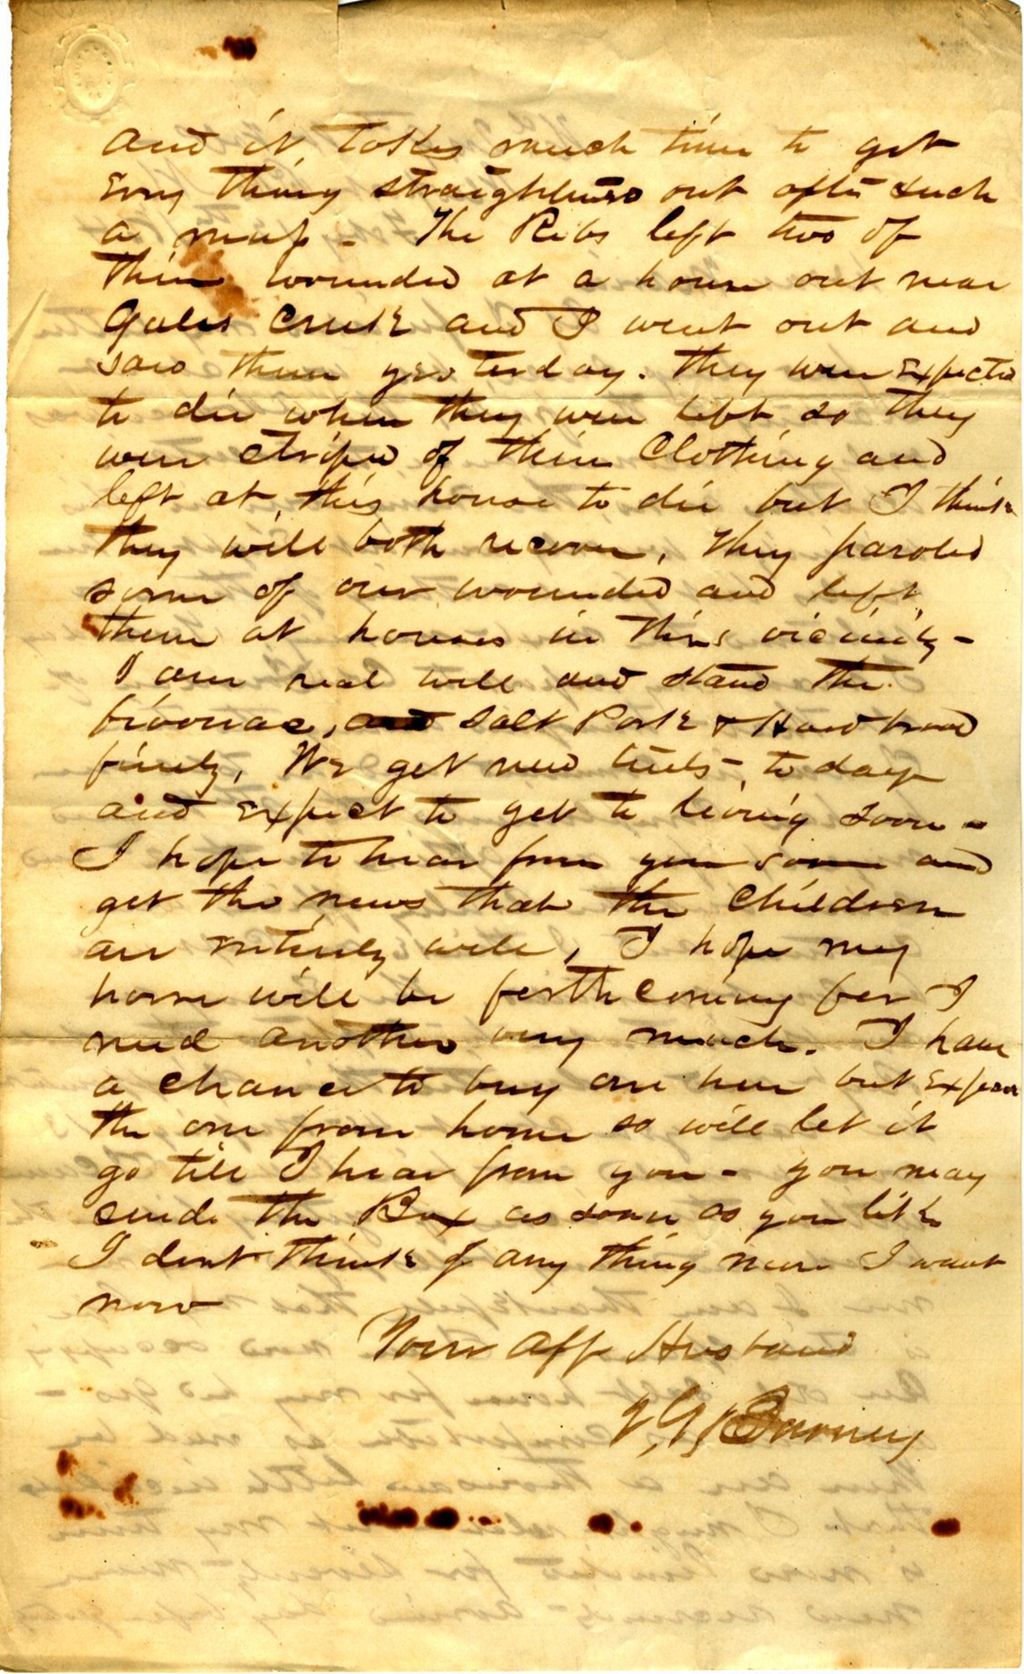 and it takes much time to get
every thing straightened out after such
a muss - The Rebs left two of
their wounded at a house out near
Gales Creek and I went out and
saw them yesterday. They were expected
to die when they were left so they
were striped of their Clothing and
left at this house to die but I think
they will both recover, They paroled
some of our wounded and left
them at houses in this vicinity -
I am real well and stand the
bivouac, and Salt Pork & Hard bread
finely, We get new tents to day
and expect to get to living soon -
I hope to hear from you soon and
get the news that the Children
are entirely well, I hope my
horse will be forthcoming for I
need another very much. I have
a chance to buy one here but expect
the one from home so will let it
go till I hear from you - you may
send the Box as soon as you like
I dont think of any thing more I want
now
Your Aff Husband
Barney